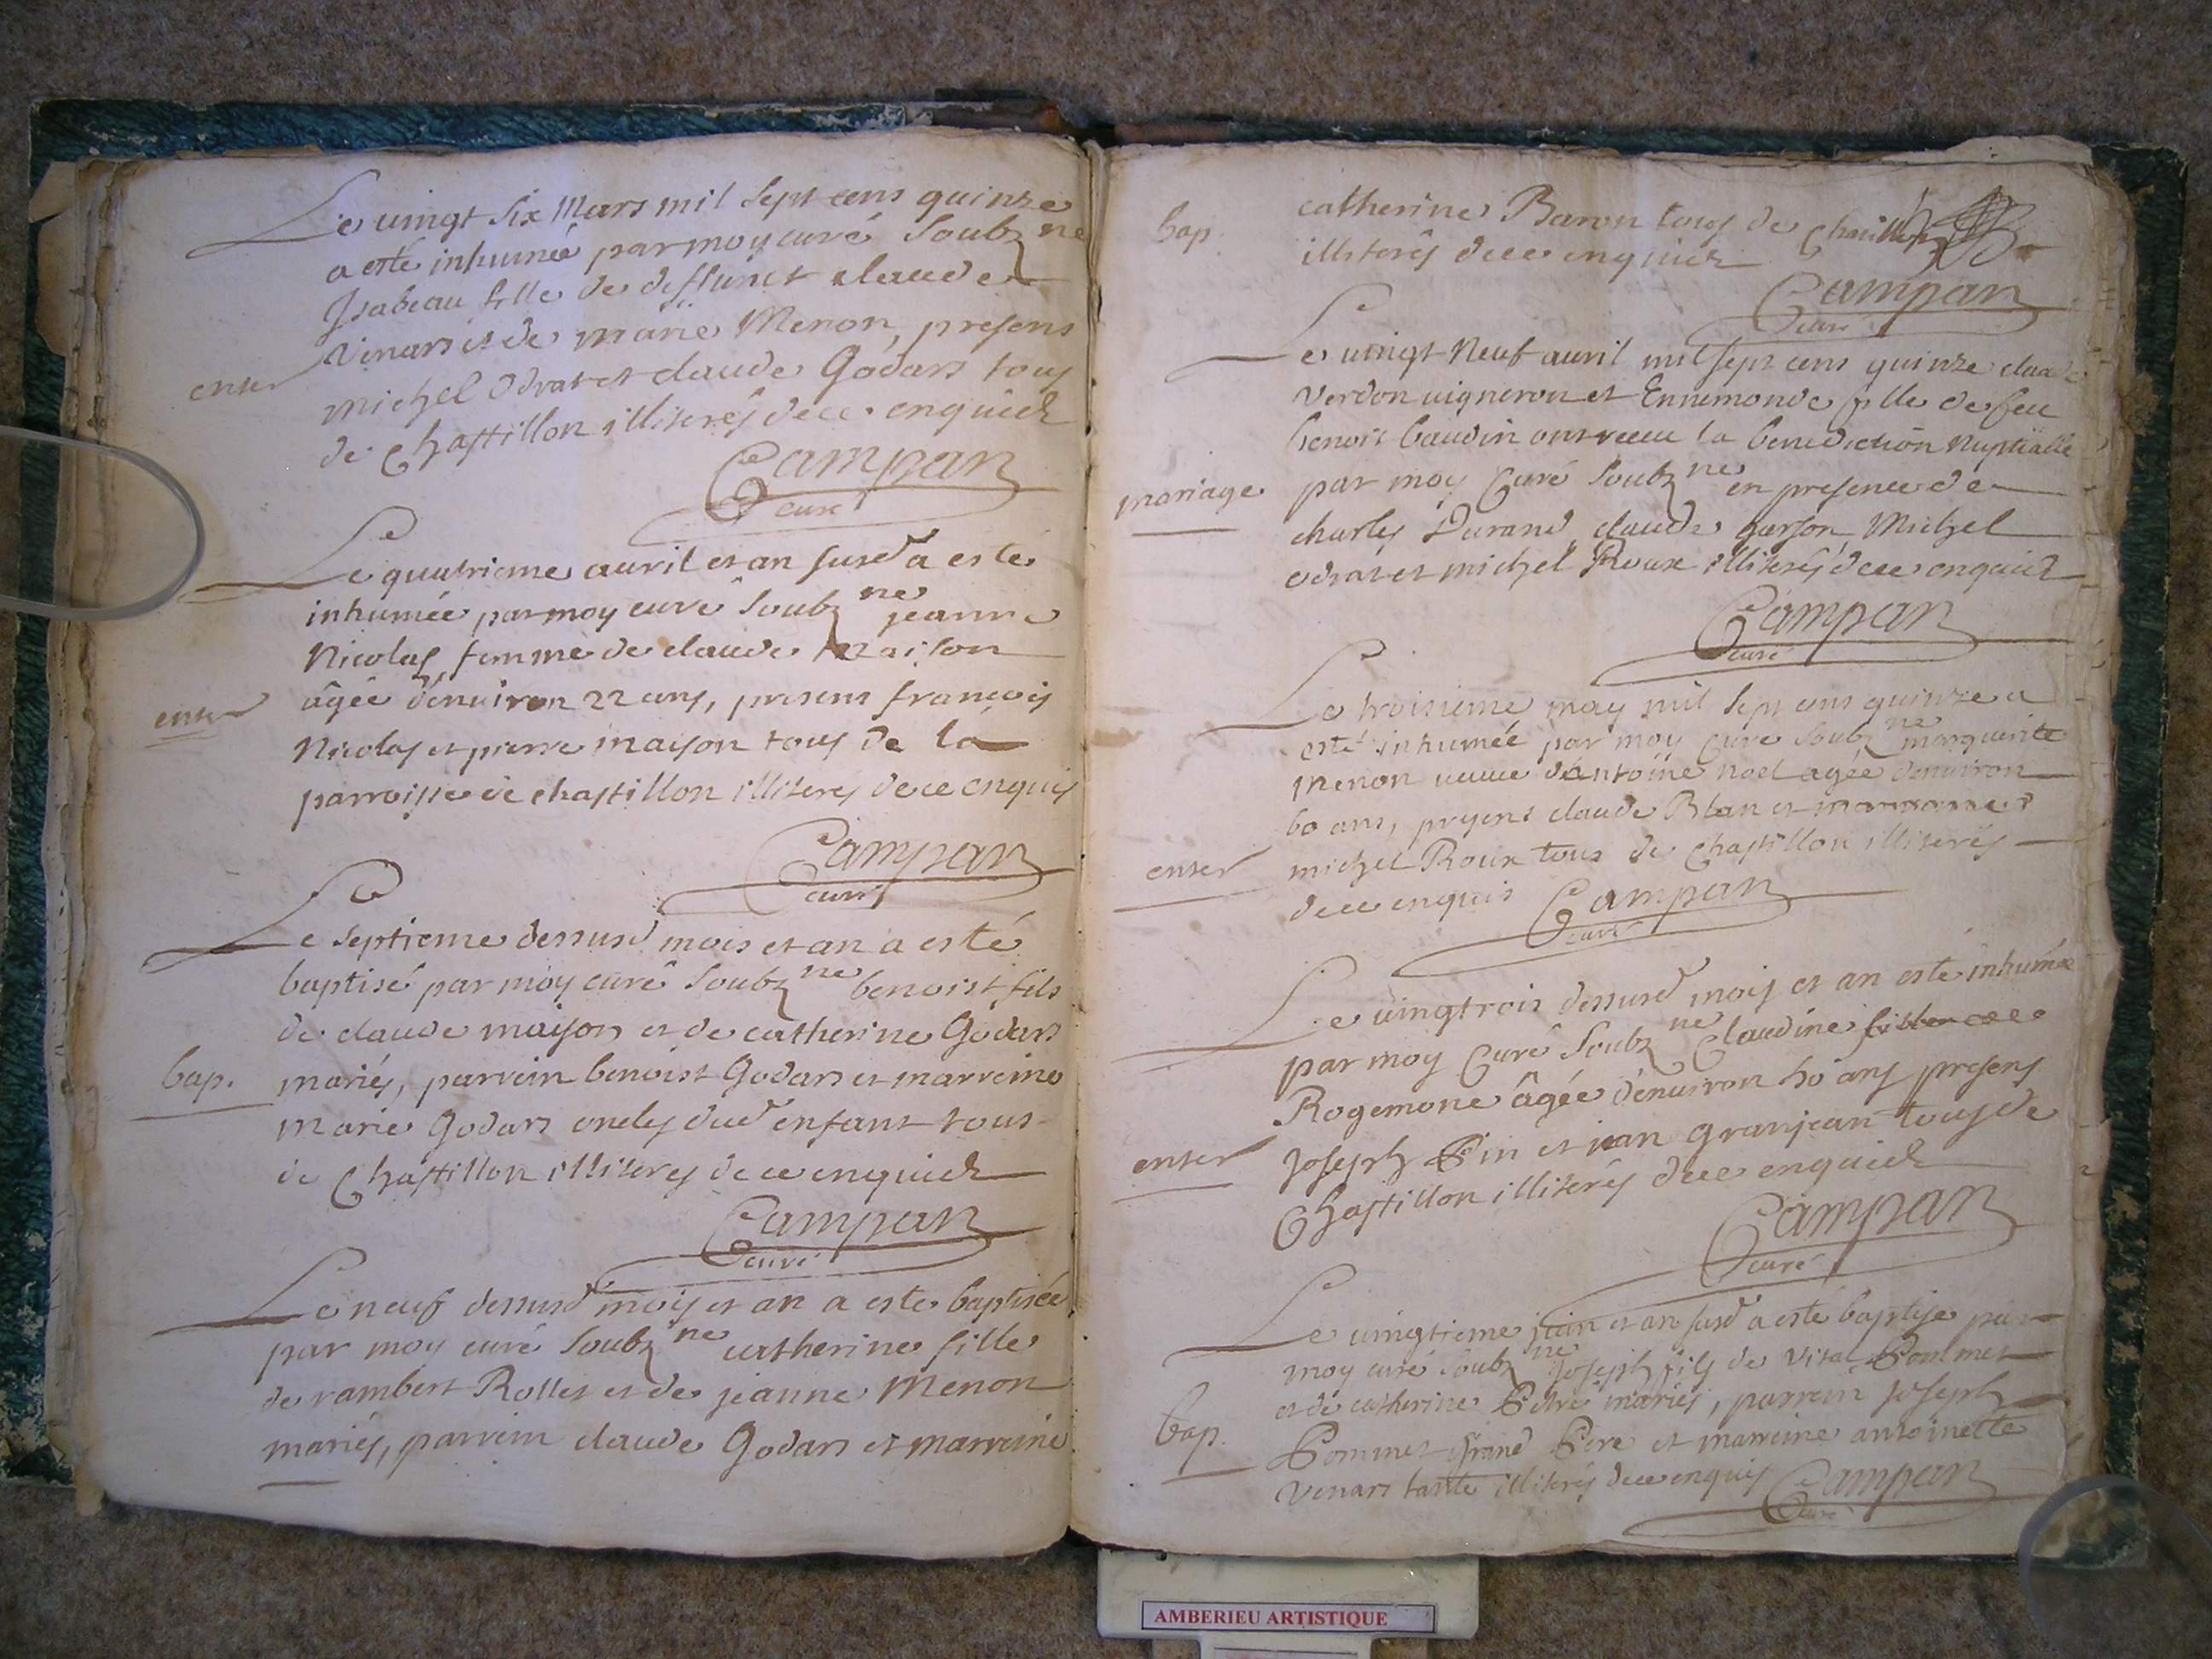 Le vingt six Mars mil sept cens quinze
a esté inhumée par moy curé soubz ne
Isabeau fille de deffunct claude
Venars et de marie Menon, presens
enter
michel Odrat et claude Godars tous
de Chastillon illiterés de ce enquich
Campan
curé
Le quatrieme auril et an susd a este
inhumée par moy curé soubz ne jeanne
Nicolas femme de claude Maison
âgée d'enuiron 22 ans, presens françois
enter
Nicolas et pierre maison tous de la
parroisse de chastillon illiteres de ce enquis
Campan
curé
Le septieme dessusd mois et an a esté
baptisé par moy curé soubz ne benoist fils
de claude maison et de catherine Godars
bap.
mariés, parrein benoist Godars et marreine
marie Godars oncles dud enfant tous
de Chastillon illiteres de ce enquich
Campan
curé
Le neuf dessusd mois et an a este baptisée
par moy curé soubz ne catherine fille
de rambert Rollet et de jeanne Menon
mariés, parrein claude Godars et marreine
bap.
catherine Baron tous de
illiterés de ce enquich
Campan
curé
Le vingt Neuf auril mil sept cens quinze claude
Verdon uigneron et Ennemonde fille de feu
benoist baudin ont receu la benediction Nuptialle
mariage
par moy Curé soubz ne en presence de
charles Durand, claude garson Michel
odrat et michel Roux illiterés de ce enquich
Campan
curé
Le troisieme may mil sept cens quinze a
esté inhumée par moy Curé soubz ne marguerite
Menon ueuue d'antoine noel agée d'enuiron
60 ans, presens claude Blan et
enter
michel Roux tous de Chastillon illiterés
de ce enquis Campan
curé
Le vingtrois dessusd mois et an esté inhumée
par moy Curé soubz ne Claudine
Rogemone âgée d'enuiron ans presens
enter
Joseph Pin et jean granjean tous de
Chastillon illiterés de ce enquich
Campan
curé
Le vingtieme juin et an susd a esté baptise par
moy curé soubz ne Joseph fils de Vital Pommet
et de catherine mariés, parrein Joseph
bap.
Pommet grand Pere et marreine antoinette
Venars tante illiterés de ce enquis Campan
curé
AMBERIEU ARTISTIQUE